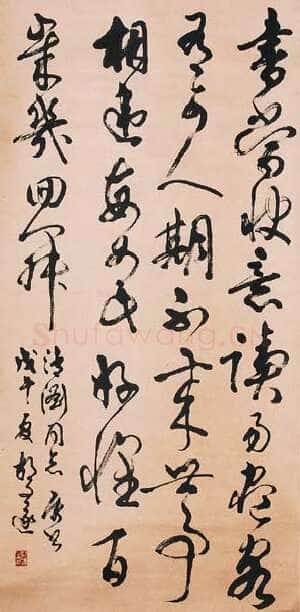 書當快意讀易盡客
有可人期不來世事
相違每如此好懷百
歲幾回開
同志
戊午夏 胡問遂
Shufawang.CN